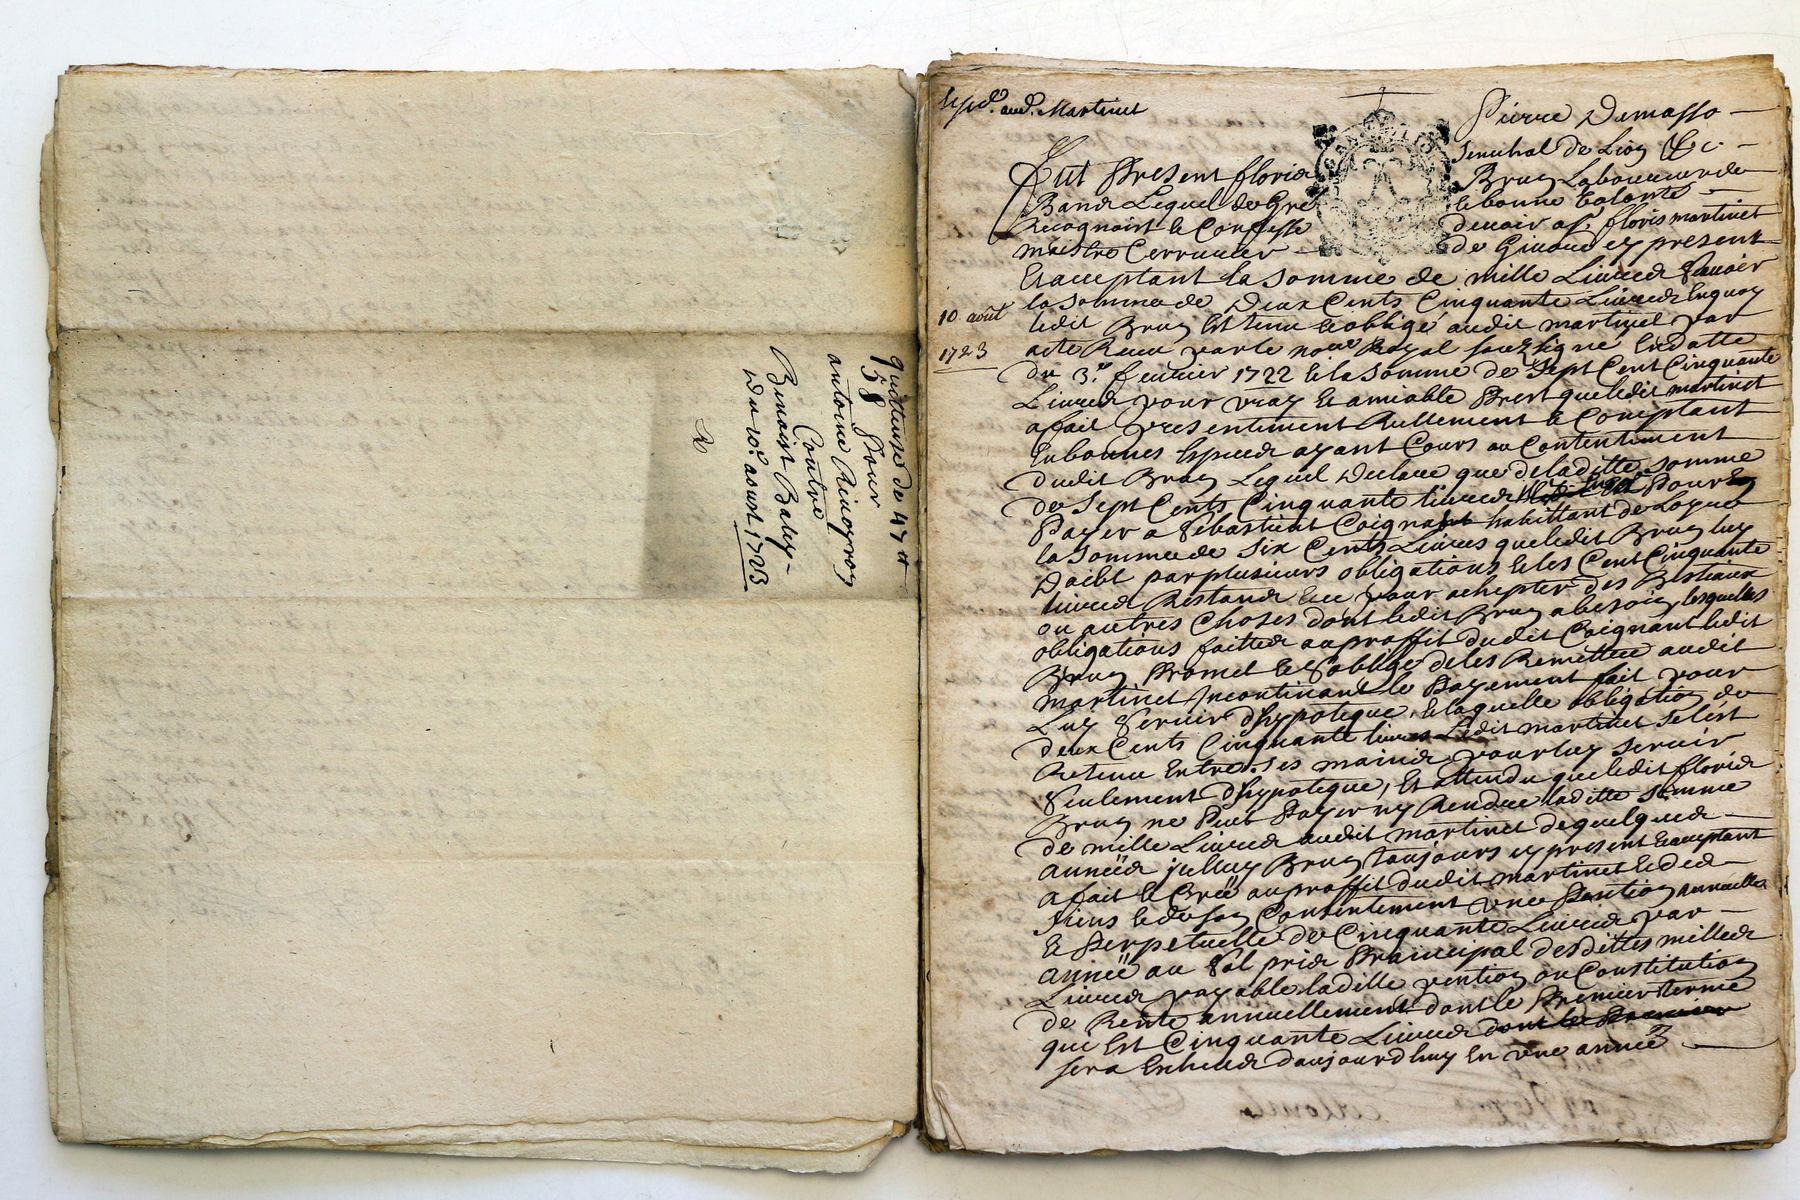 quittance de 47 ₶
58 Pour
antoine
Contre
Benoist
du 10e. aoust 1723
Martinet
Pierre Demasso
Senechal de Lion &c.
10 août
1723
Fut Present floris Brun Laboureur de
Bans Lequel de Gre et bonne Volonté
Recognoist et Confesse devoir a sr. floris martinet
maistre de Givors cy present
Et acceptant la somme de mille Livres Scavoir
la somme de Deux Cents Cinquante Livres En quoy
ledit Brun Est tenu et obligé audit martinet par
acte Receu par le nore Royal soussigné En datte
du 3.e fevrier 1722 et la somme de Sept Cent Cinquante
Livres pour vray et amiable Prest que ledit martinet
a fait presentement Reellement et Comptant
En bonnes Especes ayant Cours au Contentement
dudit Brun Lequel Declare que de ladite somme
de Sept Cents Cinquante livres Pour En
Payer a Sebastien Coignant habittant de
la somme de Six Cents Livres que ledit Brun luy
Doibt par plusieurs obligations et les Cent Cinquante
livres Restans Est pour achepter des Bestiaux
ou autres Choses dont ledit Brun a besoin, lesquelles
obligations faittes au proffit dudit Coignant ledit
Brun Promet et s'oblige de les Remettre audit
martinet Incontinant le Payement fait pour
Luy Servir d'hypoteque, et laquelle obligation de
deux Cents Cinquante livres Ledit martinet se l'est
Retenu Entre ses mains pour luy servir
Seulement d'hypoteque, Et attendu que ledit floris
Brun ne Peut Payer ny Rendre ladite Somme
de mille Livres audit martinet de quelques
années Brun toujours cy present Et acceptant
a fait et Créé au proffit dudit martinet et des
siens et de son Consentement une Pention annuelle
Et Perpetuelle de Cinquante Livres par
année au Sol pris Principal desdittes milles
Livres payable ladite pention ou Constitution
de Rente annuellement dont le Premier terme
qui Est Cinquante Livres dont le Premier
sera Eschus d'aujourd'huy En une année